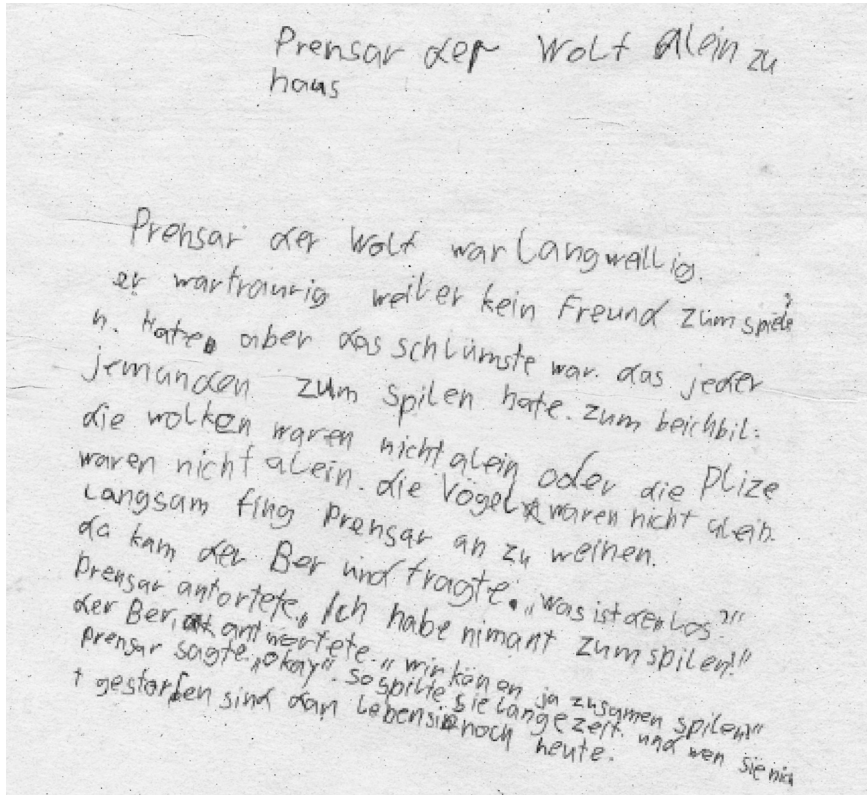 Prensar der Wolf alein zu
haus
Prensar der Wolf war langweillig.
er war traurig weil er kein Freund zum spiele
n. Hate. aber das schlümste war. das jeder
jemanden zum spilen hate. zum beichbil:
die wolken waren nicht alein oder die Plize
waren nicht alein. die Vögel waren nicht alein.
Langsam fing Prensar an zu weinen.
da kam der Ber und fragte. „was ist den los?"
Prensar antortete„ Ich habe nimant zum spilen!"
der Ber, antwortete." wir könen ja zusamen spilen!"
Prensar sagte„okay". So spilte sie lange zeit. und wen sie nich
t gestorfen sind dan leben sie noch heute.